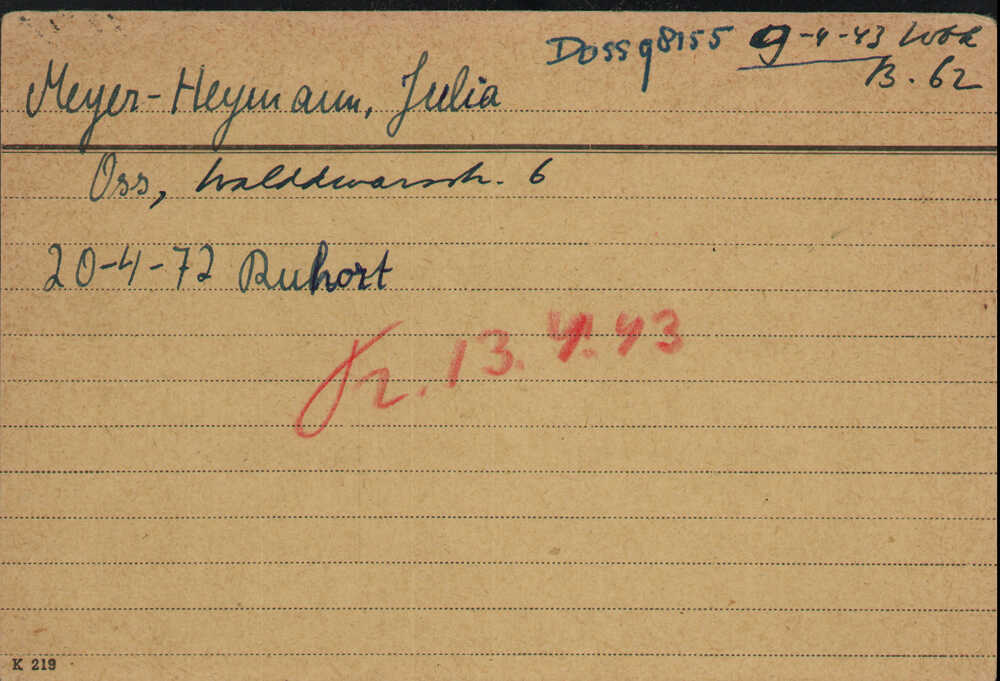 Doss q8155 9-4-43 Wbk
B. 62
Meyer-Heymann, Julia
Oss, Walddwarsstr. 6
20-4-72 Ruhort
Tr. 13.4.43
K 219